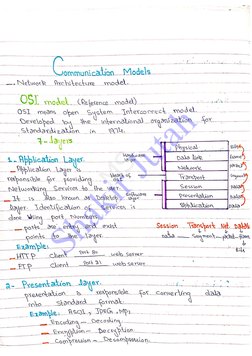 Communication Models
Network Architecture model.
OSI model (Reference model)
OSI means open System Interconnect model
Developed by the international organization for
Standardization in 1974.
7-layers
Physical
Data link
Network
Transport
Session
Presentation
Application
1. Application Layer
Application layer is
responsible for providing
Networking Services to the
It is also known as Desktop
layer. Identification of Services is
done Using port Numbers.
ports are entry and exit
points to the layer
Session Transport Net Data
data - segment - packet - frame
Bits
Example:
HTTP client Port 80 web server
FTP client Port 21 web server
2- Presentation layer
presentation is responsible for converting data
into standard format.
Example: ASCII, JPEG, MP3
Encoding - Decoding
Encryption - Decryption
Compression - Decompression